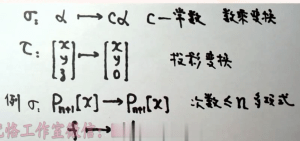 σ: α ⟼ cα  c—常数  数乘变换
τ: [x y z] ⟼ [x y 0]  投影变换
例 σ: Pn+1[x] → Pn+1[x]  次数≤n 多项式
f ⟼